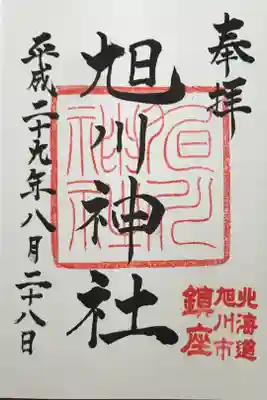 奉拝
北海道
旭川市
鎮座
旭川神社
旭川
神社
平成二十九年八月二十八日